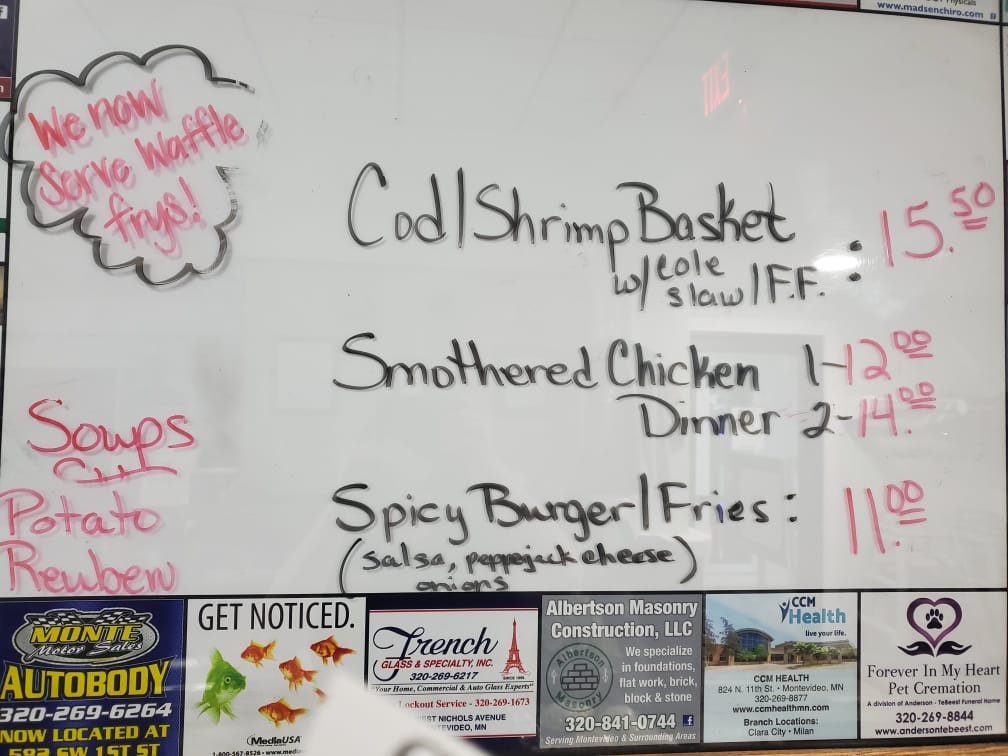 www.madsenchiro.com
We now
Serve Waffle
frys!
Cod/Shrimp Basket : 15.50
w/cole
slaw/F.F.
Smothered Chicken 1-12.00
Dinner 2-14.00
Soups
Potato
Reuben
Spicy Burger/Fries: 11.00
(salsa, pepperjack cheese
onions)
MONTE
Motor Sales
AUTOBODY
320-269-6264
NOW LOCATED AT
582 SW 1ST ST
GET NOTICED.
MediaUSA
1-800-567-8526
French
GLASS & SPECIALTY, INC.
320-269-6217
SINCE 1986
"Your Home, Commercial & Auto Glass Experts"
Lockout Service - 320-269-1673
WEST NICHOLS AVENUE
Albertson Masonry
Construction, LLC
Albertson
Masonry
We specialize
in foundations,
flat work, brick,
block & stone
320-841-0744
Serving Montevideo & Surrounding Areas
CCM
Health
live your life.
CCM HEALTH
824 N. 11th St. • Montevideo, MN
320-269-8877
www.ccmhealthmn.com
Branch Locations:
Clara City • Milan
Forever In My Heart
Pet Cremation
A division of Anderson - TeBeest Funeral Home
320-269-8844
www.andersontebeest.com